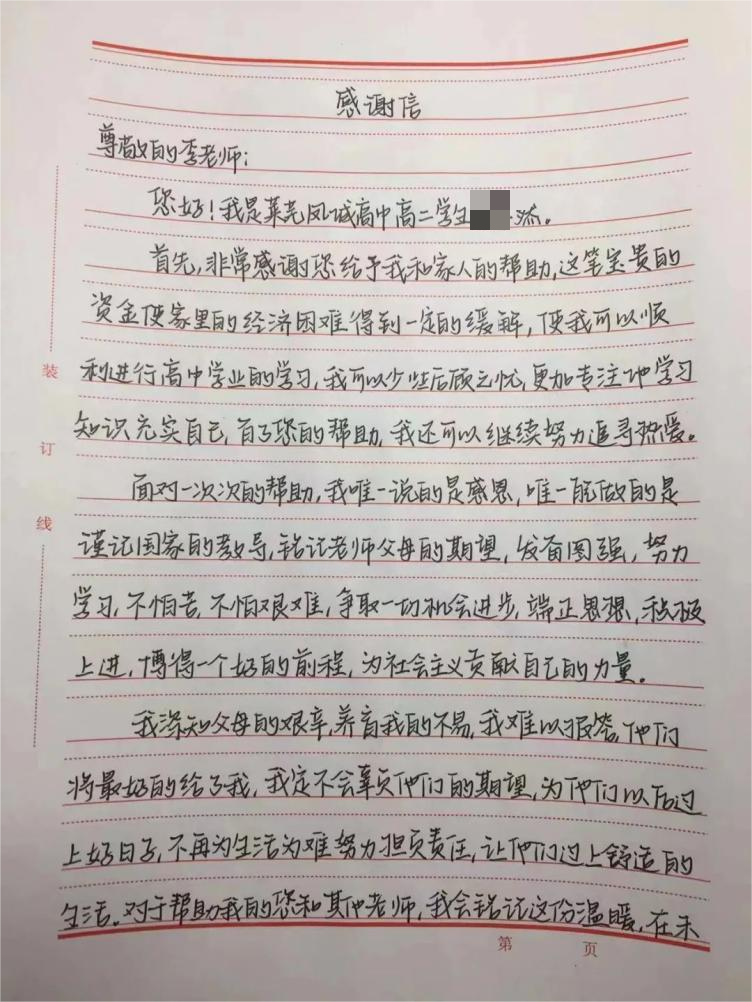 感谢信
尊敬的李老师：
您好！我是莱芜凤城高中高二学生添。
首先，非常感谢您给予我和家人的帮助，这笔宝贵的
资金使家里的经济困难得到一定的缓解，使我可以顺
利进行高中学业的学习，我可以少些后顾之忧，更加专注地学习
知识充实自己，有了您的帮助，我还可以继续努力追寻热爱。
面对一次次的帮助，我唯一说的是感恩，唯一能做的是
谨记国家的教导，铭记老师父母的期望，发奋图强，努力
学习，不怕苦，不怕艰难，争取一切机会进步，端正思想，积极
上进，博得一个好的前程，为社会主义贡献自己的力量。
我深知父母的艰辛，养育我的不易，我难以报答，他们
将最好的给了我，我定不会辜负他们的期望，为他们以后过
上好日子，不再为生活为难努力担负责任，让他们过上舒适的
生活。对于帮助我的您和其他老师，我会铭记这份温暖，在未
装
订
线
第 页